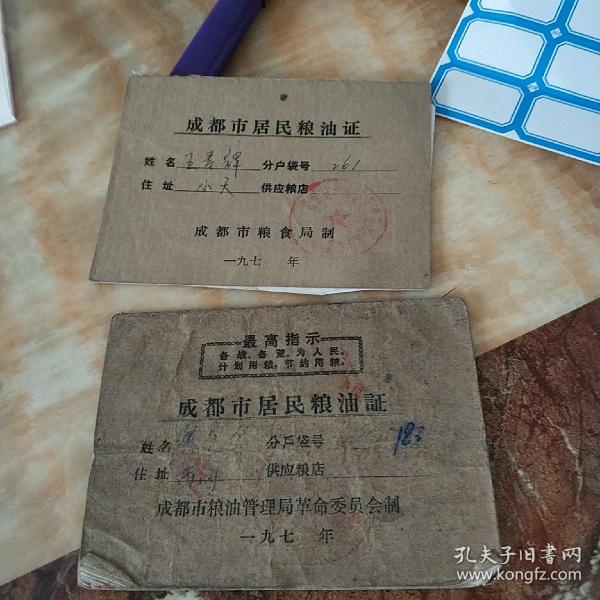 成都市居民粮油证
姓名 分户袋号 261
住址 小天 供应粮店
成都市粮食局制
一九七 年
最高指示
备战、备荒、为人民。
计划用粮，节约用粮。
成都市居民粮油証
姓名 分户袋号 183
住址 供应粮店
成都市粮油管理局革命委员会制
一九七 年
孔夫子旧书网
www.kongfz.com